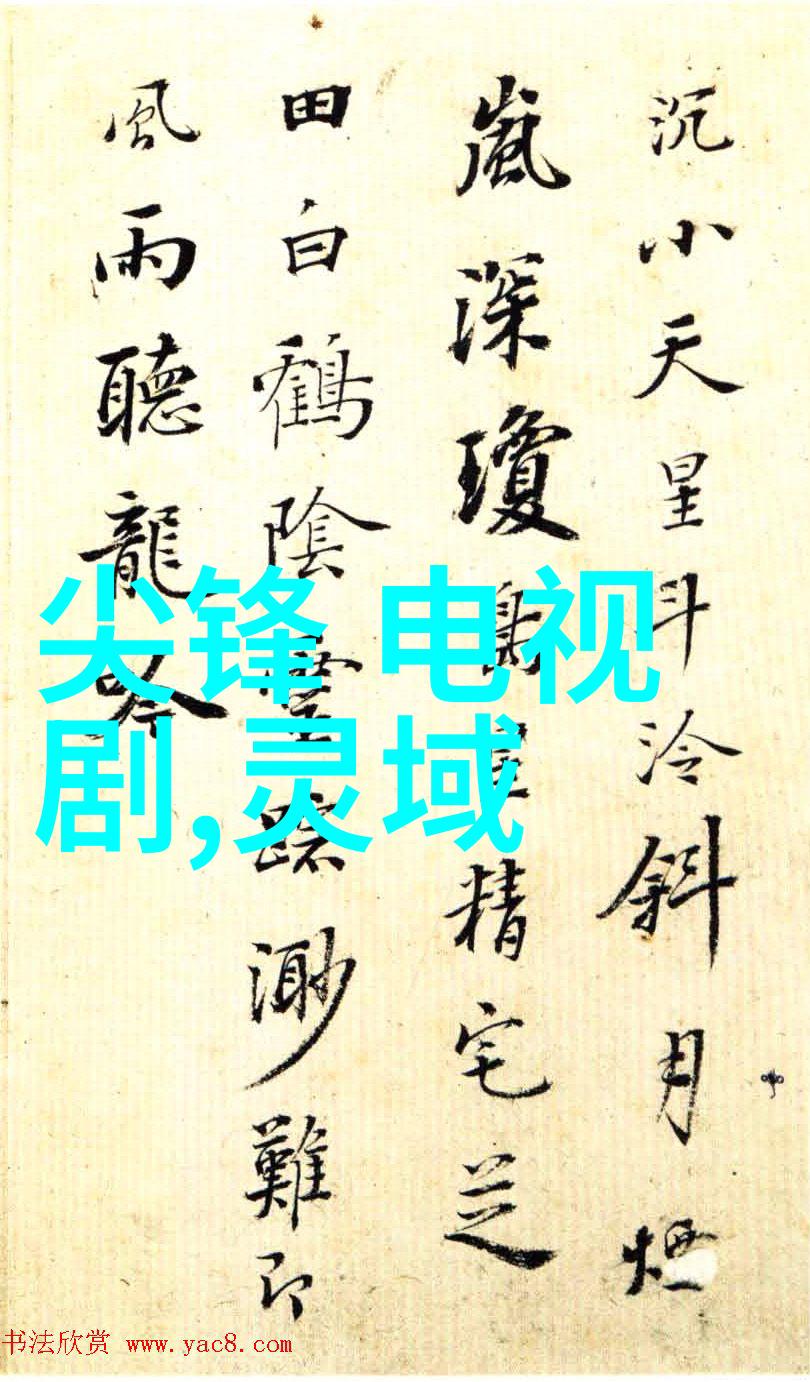 沉小天星斗泠斜月煙
嵐深瓊精宅芝
田白鶴陰渺難即
風雨聽龍吟
尖锋 电视
剧,灵域
书法欣赏 www.yac8.com